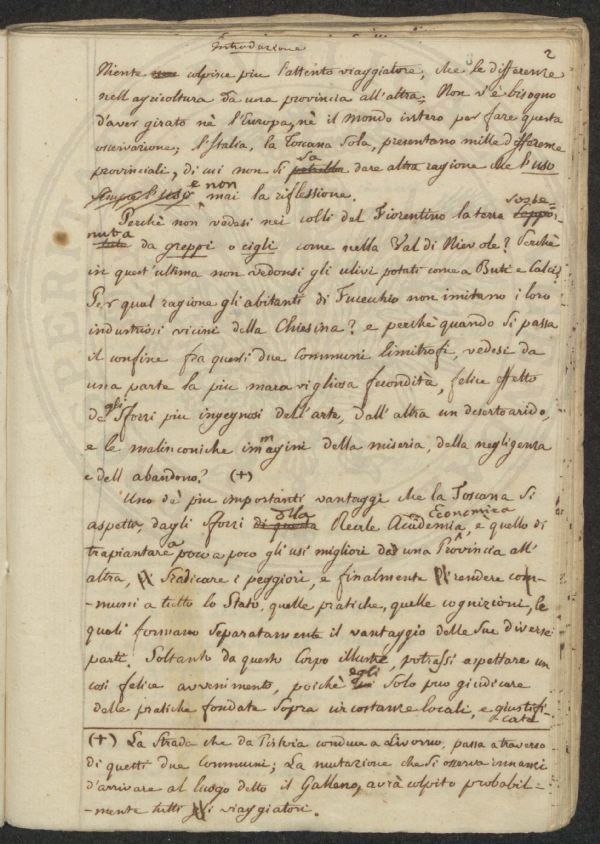 Introduzione
2
Niente colpisce piu l'attento viaggiatore, che le differenze
nell'agricoltura da una provincia all'altra; Non v'è bisogno
d'aver girato nè l'Europa, nè il mondo intero per fare questa
osservazione; l'Italia, la Toscana sola, presentano mille differenze
provinciali, di cui non si sa dare altra ragione che l'uso
e non mai la riflessione.
Perchè non vedesi nei colli del Fiorentino la terra soste-
nuta da greppi o cigli come nella Val di Nievole? Perchè
in quest'ultima non vedonsi gli ulivi potati come a Buti e Calci?
Per qual ragione gli abitanti di Fucecchio non imitano i loro
industriosi vicini della Chiesina? e perchè quando si passa
il confine fra questi due Communi limitrofi, vedesi da
una parte la piu maravigliosa fecondità, felice effetto
degli sforzi piu ingegnosi dell'arte, dall'altra un deserto arido,
e le malinconiche immagini della miseria, della negligenza
e dell'abandono? (+)
Uno de' piu importanti vantaggi che la Toscana si
aspetta dagli sforzi della Reale Accademia Economica, e quello di
trapiantare a poco a poco gli usi migliori da una Provincia all'
altra, sradicare i peggiori, e finalmente rendere com-
-muni a tutto lo Stato, quelle pratiche, quelle cognizioni, le
quali formano separatamente il vantaggio delle sue diverse
parti. Soltanto da questo Corpo illustre, potressi aspettare un
così felice avvenimento, poichè egli solo può giudicare
delle pratiche fondate sopra circostanze locali, e giustifi-
cate
(+) La Strada che da Pistoia conduce a Livorno, passa a traverso
di questi due communi; La mutazione che si osserva innanzi
d'arrivare al luogo detto il Galleno, avrà colpito probabil-
-mente tutti i viaggiatori.